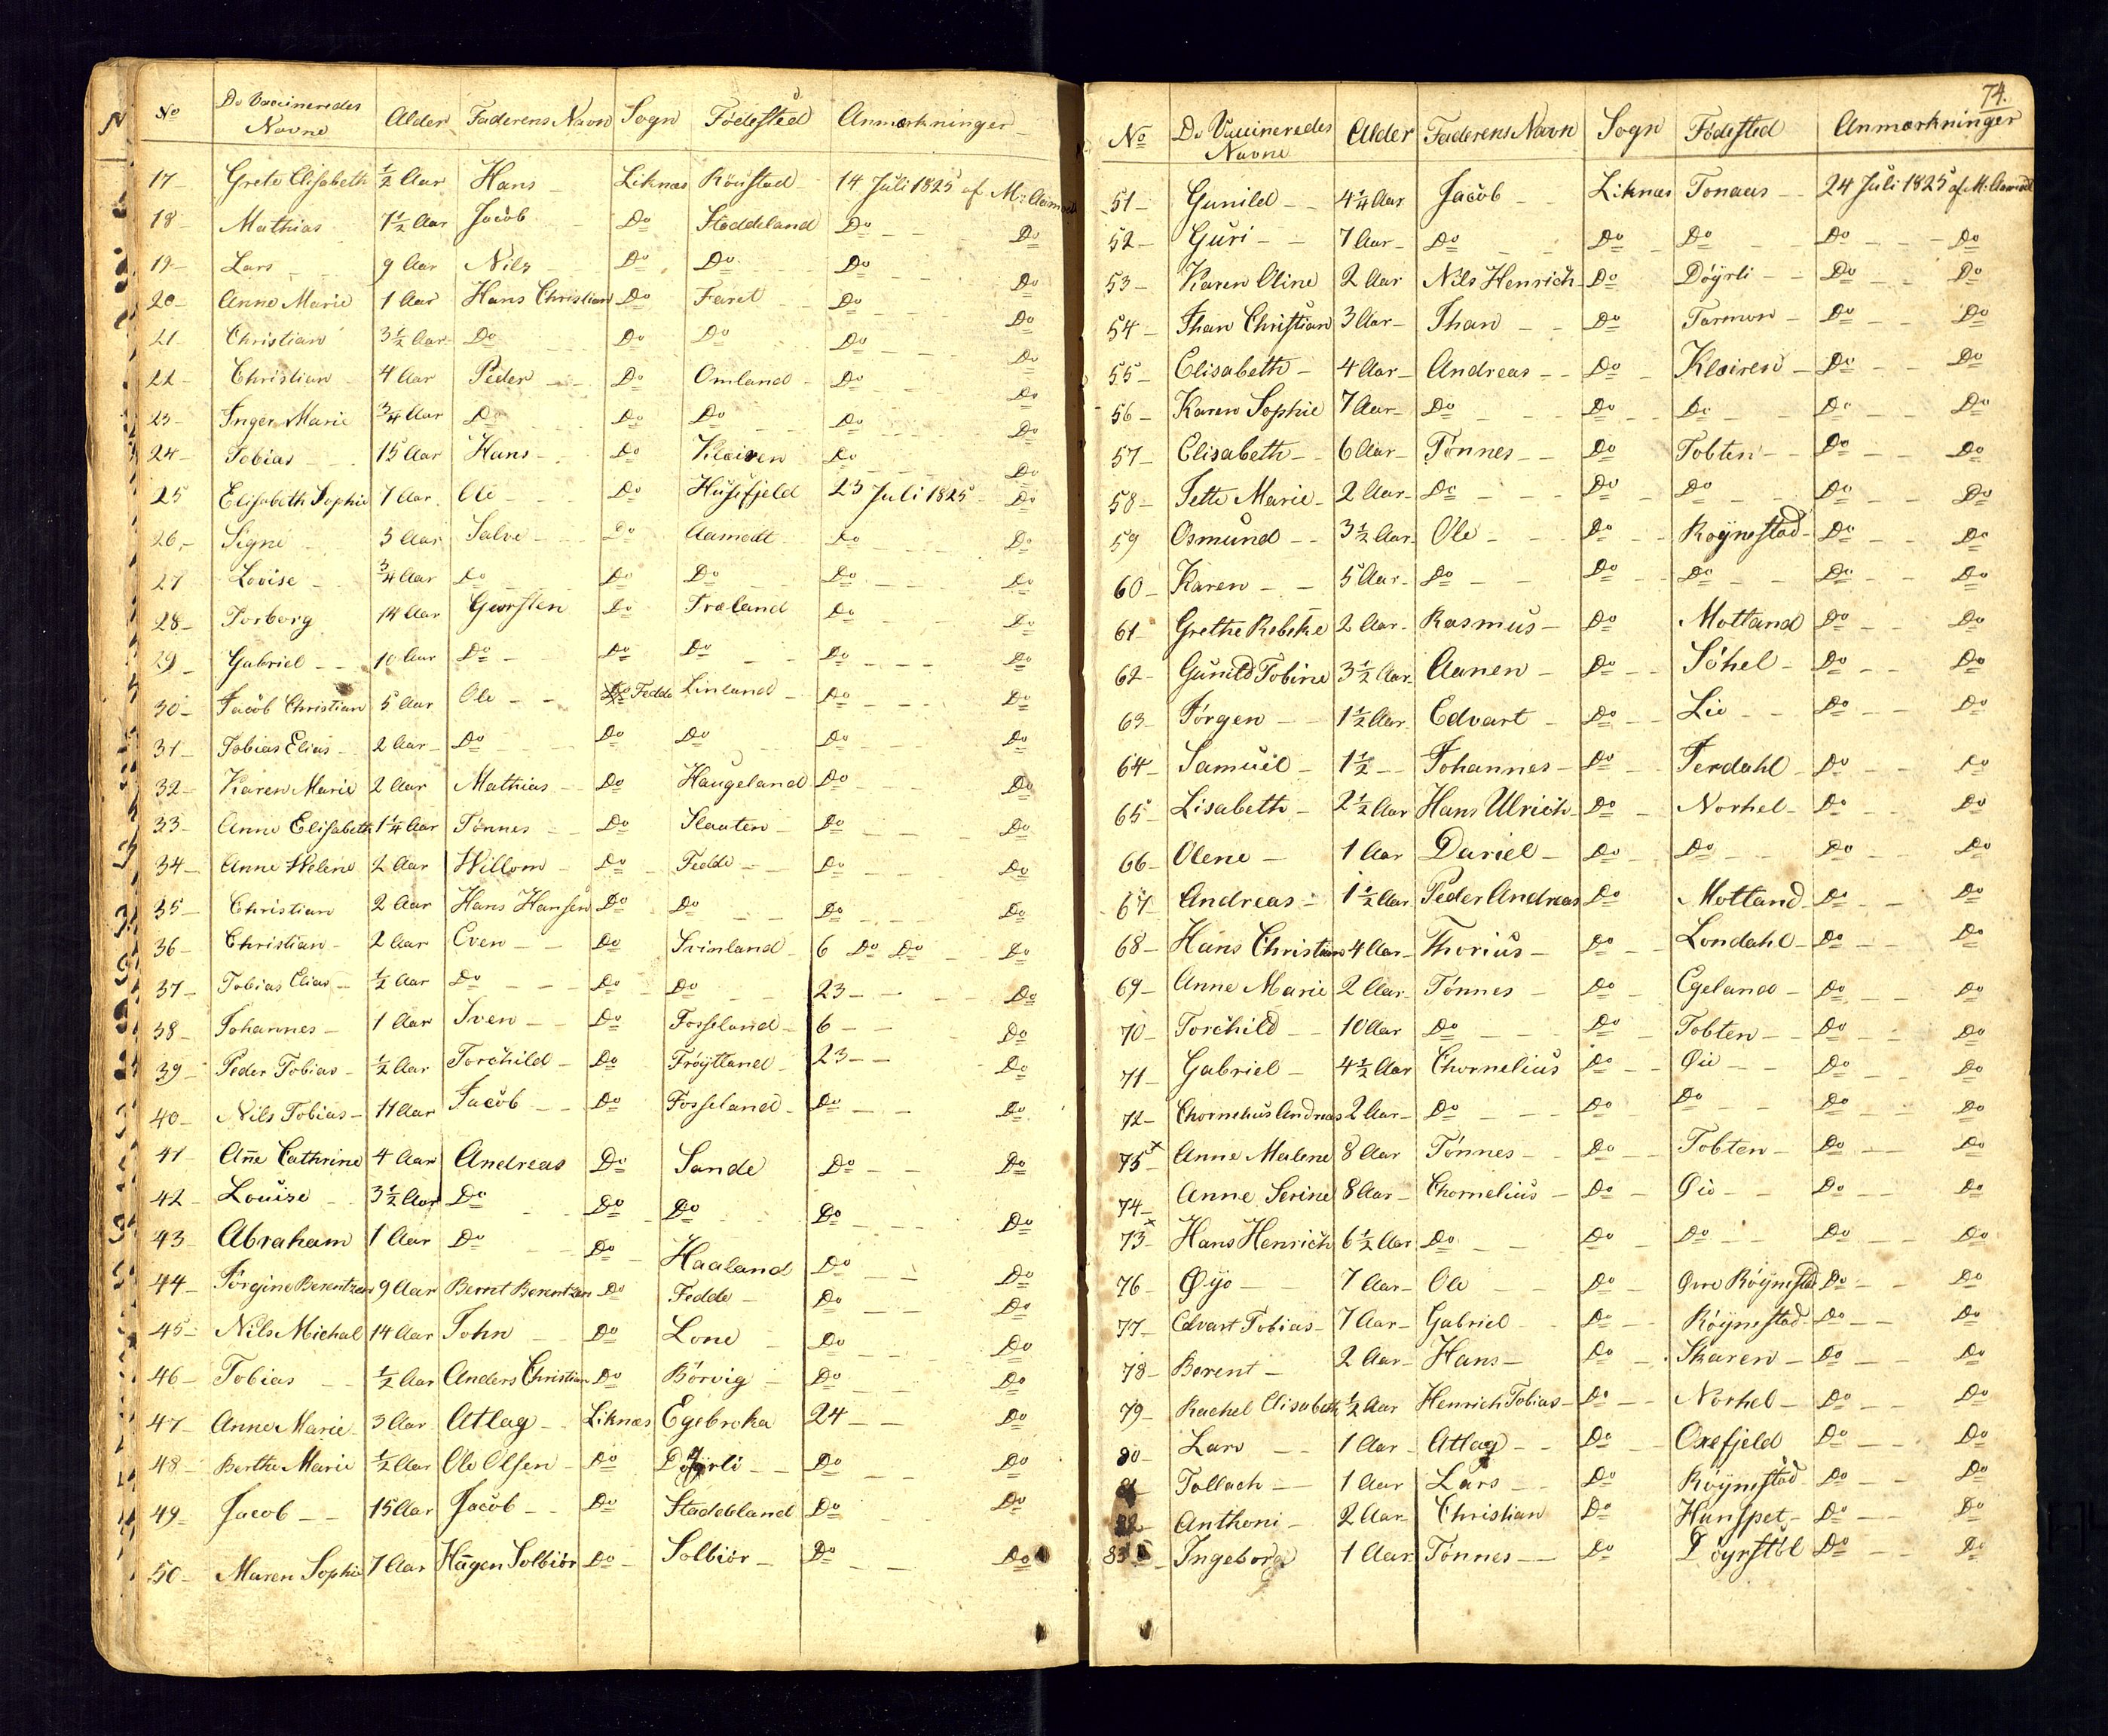 No De Vaccineredes Navne Alder Faderens Navn Sogn Födested Anmærkninger
17 Grete Elisabeth ½ Aar Hans Liknæs Röiestad 14 Juli 1825 af M: Aamodt
18 Mathias 1½ Aar Jacob Do Staddeland Do Do
19 Lars 9 Aar Nils Do Do Do Do
20 Anne Marie 1 Aar Hans Christian Do Faret Do Do
21 Christian 3½ Aar Do Do Do Do Do
22 Christian 4 Aar Peder Do Omland Do Do
23 Inger Marie ¾ Aar Do Do Do Do Do
24 Tobias 15 Aar Hans Do Kleiven Do Do
25 Elisabeth Sophie 7 Aar Ole Do Husefjeld 23 Juli 1825 Do
26 Signe 3 Aar Salve Do Aamodt Do Do
27 Lovise ¾ Aar Do Do Do Do Do
28 Torborg 14 Aar Giersten Do Træland Do Do
29 Gabriel 10 Aar Do Do Do Do Do
30 Jacob Christian 5 Aar Ole Do Fedde Linland Do Do
31 Tobias Elias 2 Aar Do Do Do Do Do
32 Karen Marie 2 Aar Mathias Do Haugeland Do Do
33 Anne Elisabeth 1¼ Aar Tönnes Do Slaaten Do Do
34 Anne Helene 2 Aar Willom Do Fedde Do Do
35 Christian 2 Aar Hans Hansen Do Do Do Do
36 Christian 2 Aar Even Do Svinland 6 Do Do Do
37 Tobias Elias ½ Aar Do Do Do 23 Do
38 Johannes 1 Aar Sven Do Fosseland 6 Do
39 Peder Tobias ½ Aar Torchild Do Fröytland 23 Do
40 Nils Tobias 11 Aar Jacob Do Fosseland Do Do
41 Añe Cathrine 4 Aar Andreas Do Sande Do Do
42 Louise 3½ Aar Do Do Do Do Do
43 Abraham 1 Aar Do Do Haaland Do Do
44 Jörgine Berentzen 9 Aar Bernt Berentzen Do Fedde Do Do
45 Nils Michal 14 Aar John Do Lone Do Do
46 Tobias ½ Aar Anders Christian Do Börvig Do Do
47 Anne Marie 3 Aar Atlag Liknæs Egebroka 24 Do
48 Berthe Marie ½ Aar Ole Olsen Do Döyrli Do Do
49 Jacob 15 Aar Jacob Do Staddeland Do Do
50 Maren Sophie 7 Aar Hagen Solbiör Do Solbiör Do Do
74.
No De Vaccineredes Navne Alder Faderens Navn Sogn Födested Anmærkninger
51 Gunild 4¼ Aar Jacob Liknæs Tonaas 24 Juli 1825 af M: Aamodt
52 Guri 7 Aar Do Do Do Do Do
53 Karen Oline 2 Aar Nils Henrich Do Döyrli Do Do
54 Jhan Christian 3 Aar Jhan Do Tarmon Do Do
55 Elisabeth 4 Aar Andreas Do Kleiven Do Do
56 Karen Sophie 7 Aar Do Do Do Do Do
57 Elisabeth 6 Aar Tönnes Do Tobten Do Do
58 Jette Marie 2 Aar Do Do Do Do Do
59 Osmund 3½ Aar Ole Do Röynestad Do Do
60 Karen 5 Aar Do Do Do Do Do
61 Grethe Rebekke 2 Aar Rasmus Do Motland Do Do
62 Gunild Tobine 3½ Aar Aanen Do Söhel Do Do
63 Jörgen 1½ Aar Edvart Do Lie Do Do
64 Samuel 1½ Johannes Do Jerdahl Do Do
65 Lisabeth 2½ Aar Hans Ulrich Do Norhel Do Do
66 Olene 1 Aar Daniel Do Do Do Do
67 Andreas 1½ Aar Peder Andreas Do Motland Do Do
68 Hans Christian 4 Aar Thorius Do Londahl Do Do
69 Anne Marie 2 Aar Tönnes Do Egeland Do Do
70 Torchild 10 Aar Do Do Tobten Do Do
71 Gabriel 4½ Aar Chornelius Do Öie Do Do
72 Chornelius Andreas 2 Aar Do Do Do Do Do
75 x Anne Malene 8 Aar Tönnes Do Tobten Do Do
74 Anne Serine 8 Aar Chornelius Do Öie Do Do
73 x Hans Henrich 6½ Aar Do Do Do Do Do
76 Øyo 7 Aar Ole Do Övre Röynestad Do Do
77 Edvart Tobias 7 Aar Gabriel Do Röynestad Do Do
78 Berent 2 Aar Hans Do Skaren Do Do
79 Rachel Elisabeth ½ Aar Henrich Tobias Do Norhel Do Do
80 Lars 1 Aar Atlag Do Oxefjeld Do Do
81 Tollach 1 Aar Lars Do Röynestad Do Do
82 Anthoni 2 Aar Christian Do Hunspet Do Do
83 Ingeborg 1 Aar Tönnes Do Döyrstöl Do Do